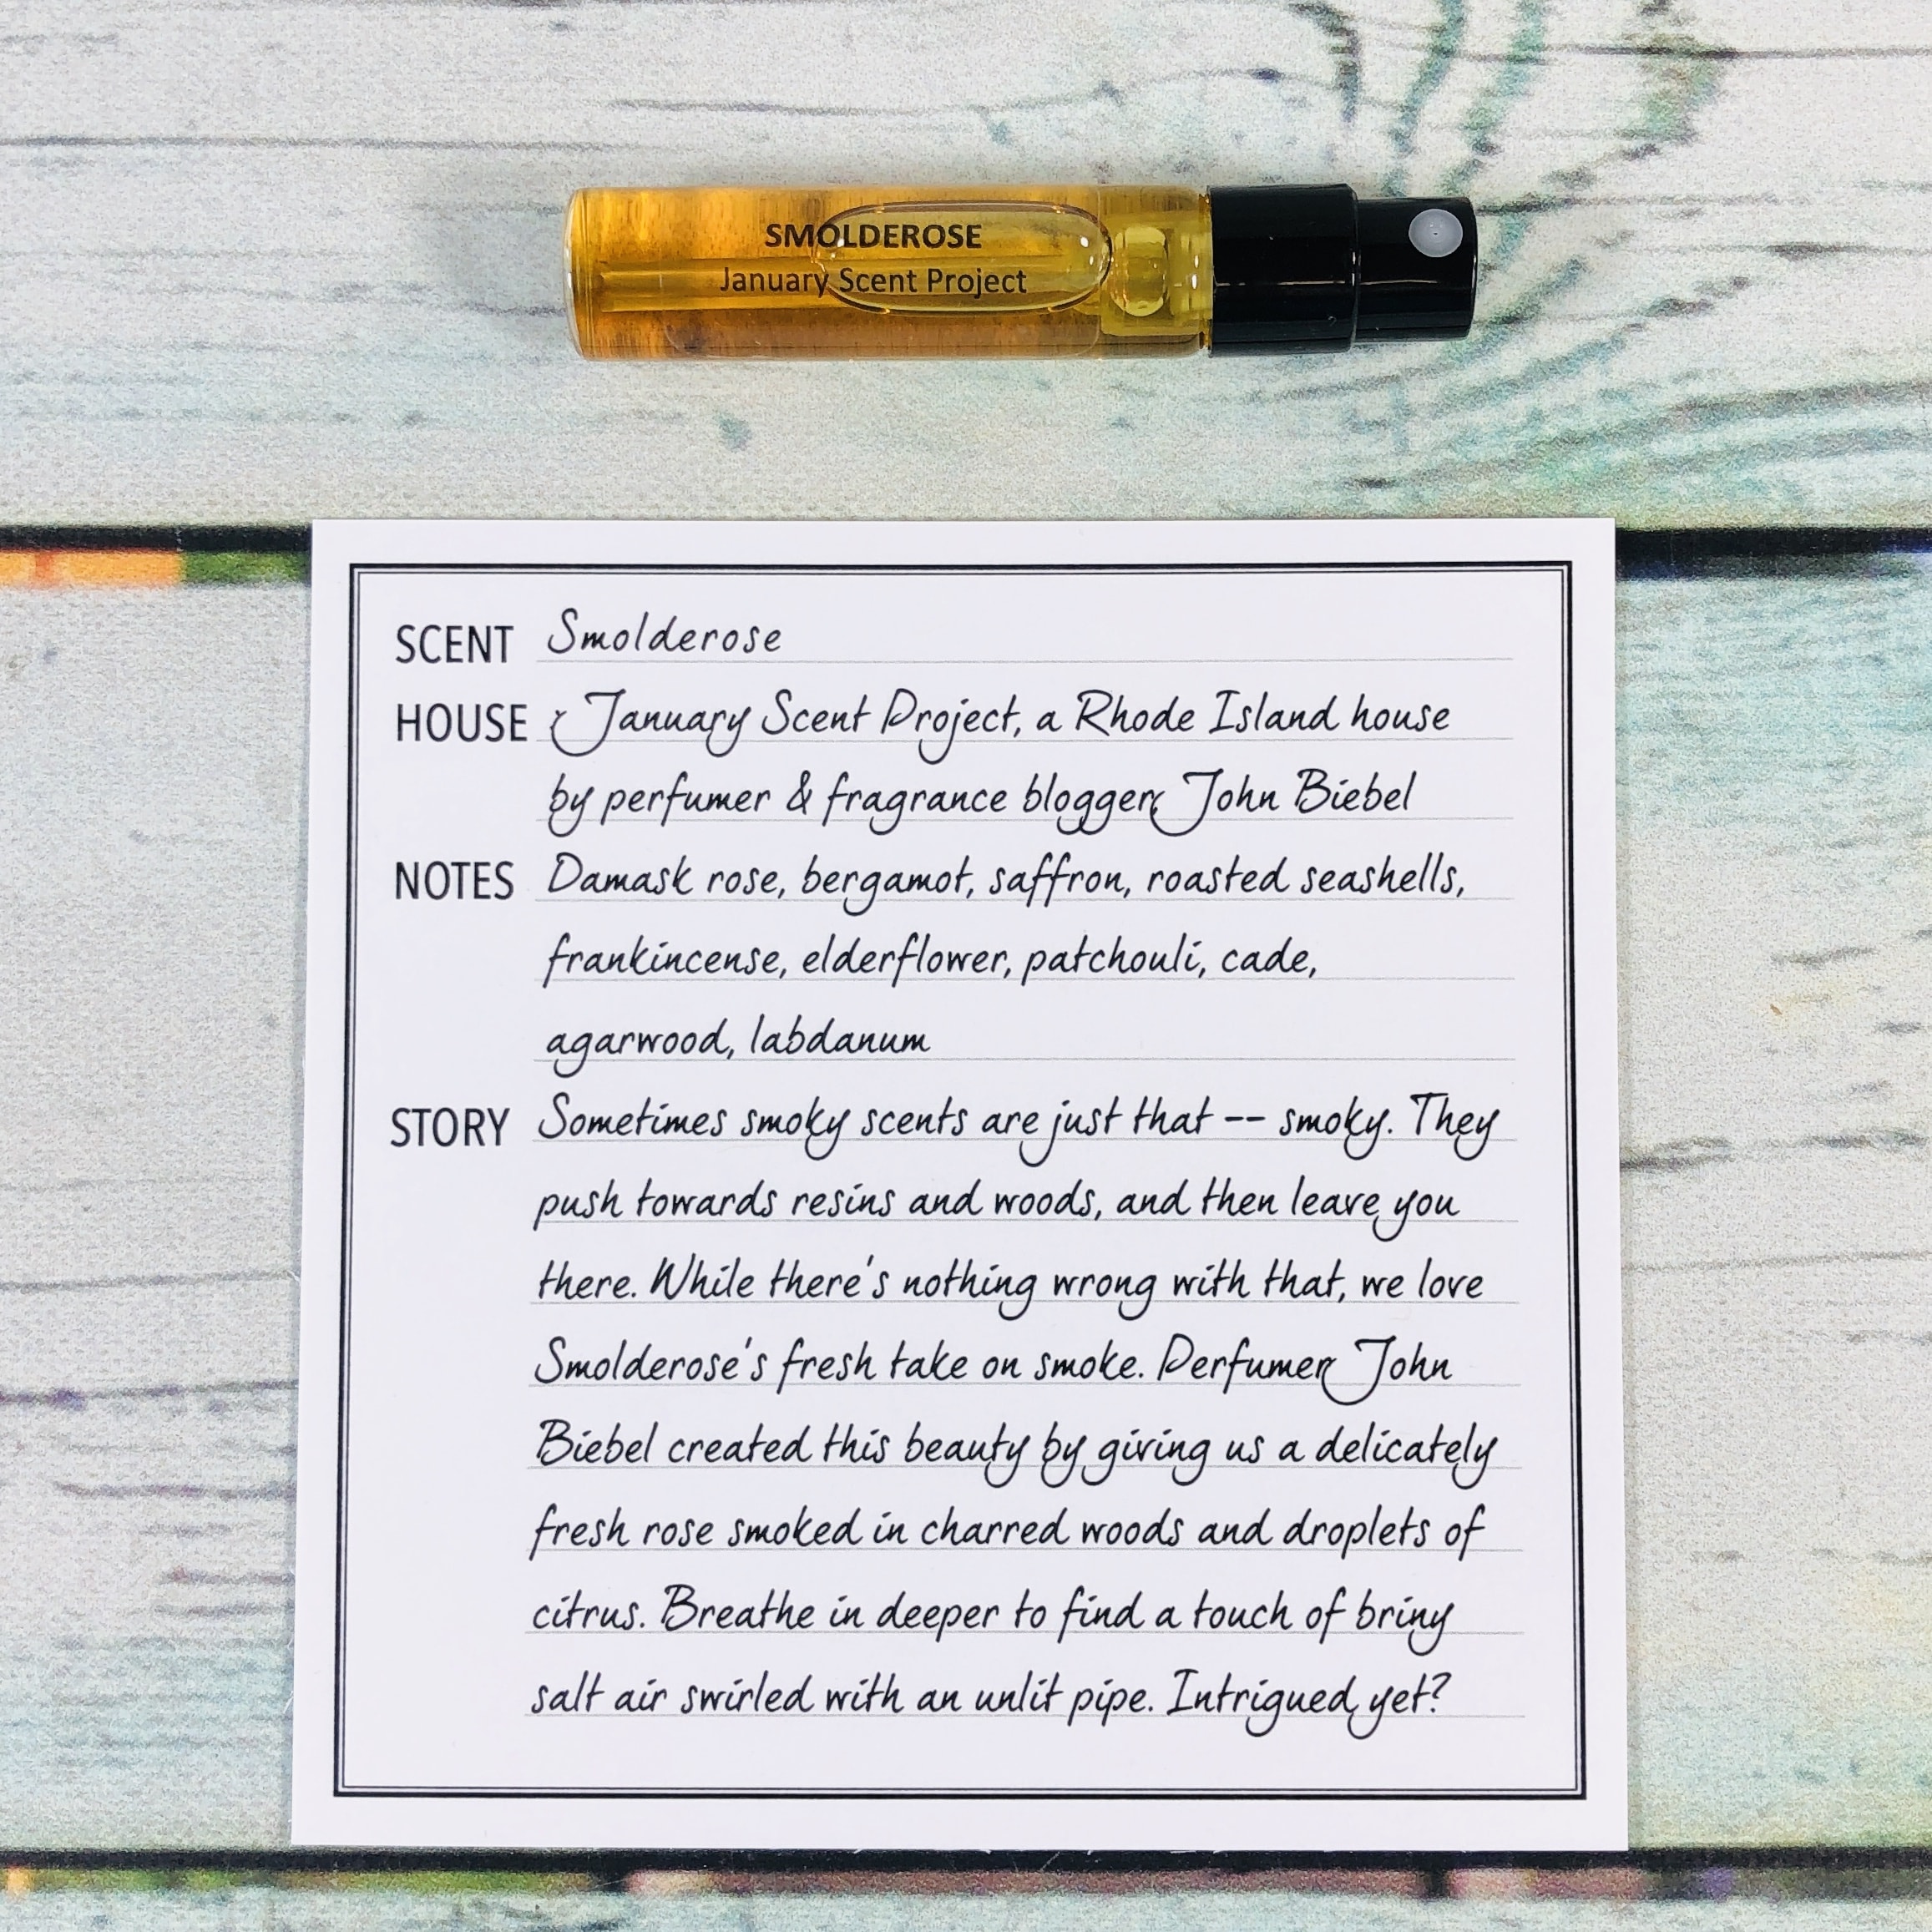 SMOLDEROSE
January Scent Project
SCENT Smolderose
HOUSE January Scent Project, a Rhode Island house
by perfumer & fragrance blogger John Biebel
NOTES Damask rose, bergamot, saffron, roasted seashells,
frankincense, elderflower, patchouli, cade,
agarwood, labdanum
STORY Sometimes smoky scents are just that -- smoky. They
push towards resins and woods, and then leave you
there. While there's nothing wrong with that, we love
Smolderose's fresh take on smoke. Perfumer John
Biebel created this beauty by giving us a delicately
fresh rose smoked in charred woods and droplets of
citrus. Breathe in deeper to find a touch of briny
salt air swirled with an unlit pipe. Intrigued yet?